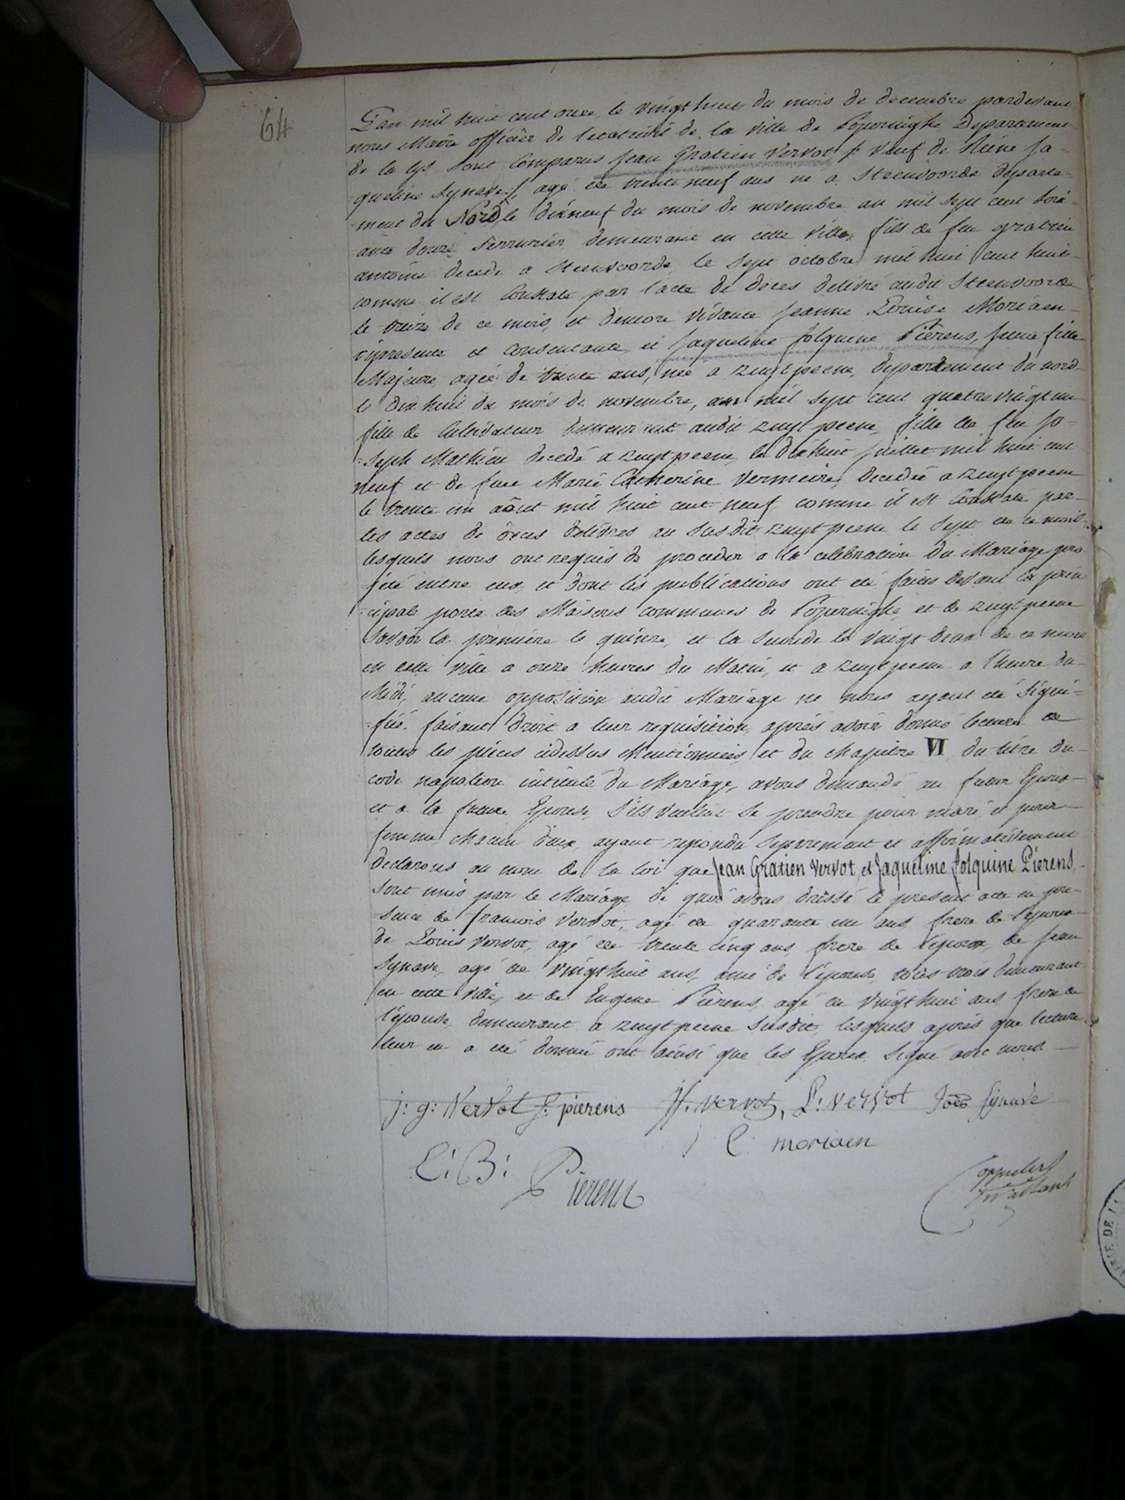 64
L'an mil huit cent onze, le vingt huit du mois de decembre pardevant
nous Maire officier de l'etat civil de la ville de Poperinghe Departement
de la Lys sont comparus Jean Gratien Vervot /: veuf de Ja-
queline Synave :/ agé de trente neuf ans né à Steenvoorde departe-
ment du Nord, le dixneuf du mois de novembre an mil sept cent soix-
ante douze serrurier demeurant en cette ville, fils de feu gratien
antoine decedé a Steenvoorde, le sept octobre mil huit cent huit
comme il est constaté par l'acte de deces delivré audit Steenvoorde
le treize de ce mois, et d'encore vivante Jeanne Louise Moriaen
ci presente et consentante, et Jaqueline Folquine Pierens, jeune fille
Majeure, agée de trente ans, née a zuytpeene, departement du nord
le dix huit du mois de novembre, an mil sept cent quatre vingt un
fille de demeurant audit zuytpeene, fille de feu Jo-
seph Mathieu decedé a zuytpeene, le dixhuit juillet mil huit cent
neuf et de feue Marie Catherine Vermeire, decedée a zuytpeene
le trente un août mil huit cent neuf comme il est constaté par
les actes de deces delivres au susdit zuytpeene le sept de ce mois
lesquels nous ont requis de proceder a la celebration du Mariage pro
jeté entre eux, et dont les publications ont été faites devant la prin
cipale porte des Maisons communes de Poperinghe et de zuytpeene
savoir la premiere le quinze, et la seconde le vingt deux de ce mois
en cette ville a onze heures du Matin, et a zuytpeene a l'heure du
Midi, aucune opposition audit Mariage ne nous ayant été signi-
fiée, faisant droit a leur requisition, après avoir donné lecture de
toutes les pièces cidessus Mentionnées, et du chapitre VI du titre du
code napoleon intitulé du Mariage, avons demandé au futur Epoux
et a la future Epouse, s'ils veulent se prendre pour mari et pour
femme chacun d'eux, ayant repondu separement et affirmativement
declarons au nom de la loi que Jean Gratien Vervot, et Jaqueline Folquine Pierens
sont unis par le Mariage de quoi avons dressé le present acte en pre-
sence de francois Vervot, agé de quarante un ans frere de l'epoux
de Louis Vervot, agé de trente cinq ans, frere de l'epoux de Jean
Synave, agé de vingt huit ans, ami de l'epouse, tous trois demeurant
en cette ville, et de Eugene Pierens, agé de vingt huit ans frere de
l'épouse, demeurant a zuytpeene susdit, lesquels après que lecture
leur en a été donnée ont ainsi que les Epoux signé avec nous
j: g: Vervot J: pierens f: vervot, L: vervot Joes Synave
L moriaen
E: B: Pierens